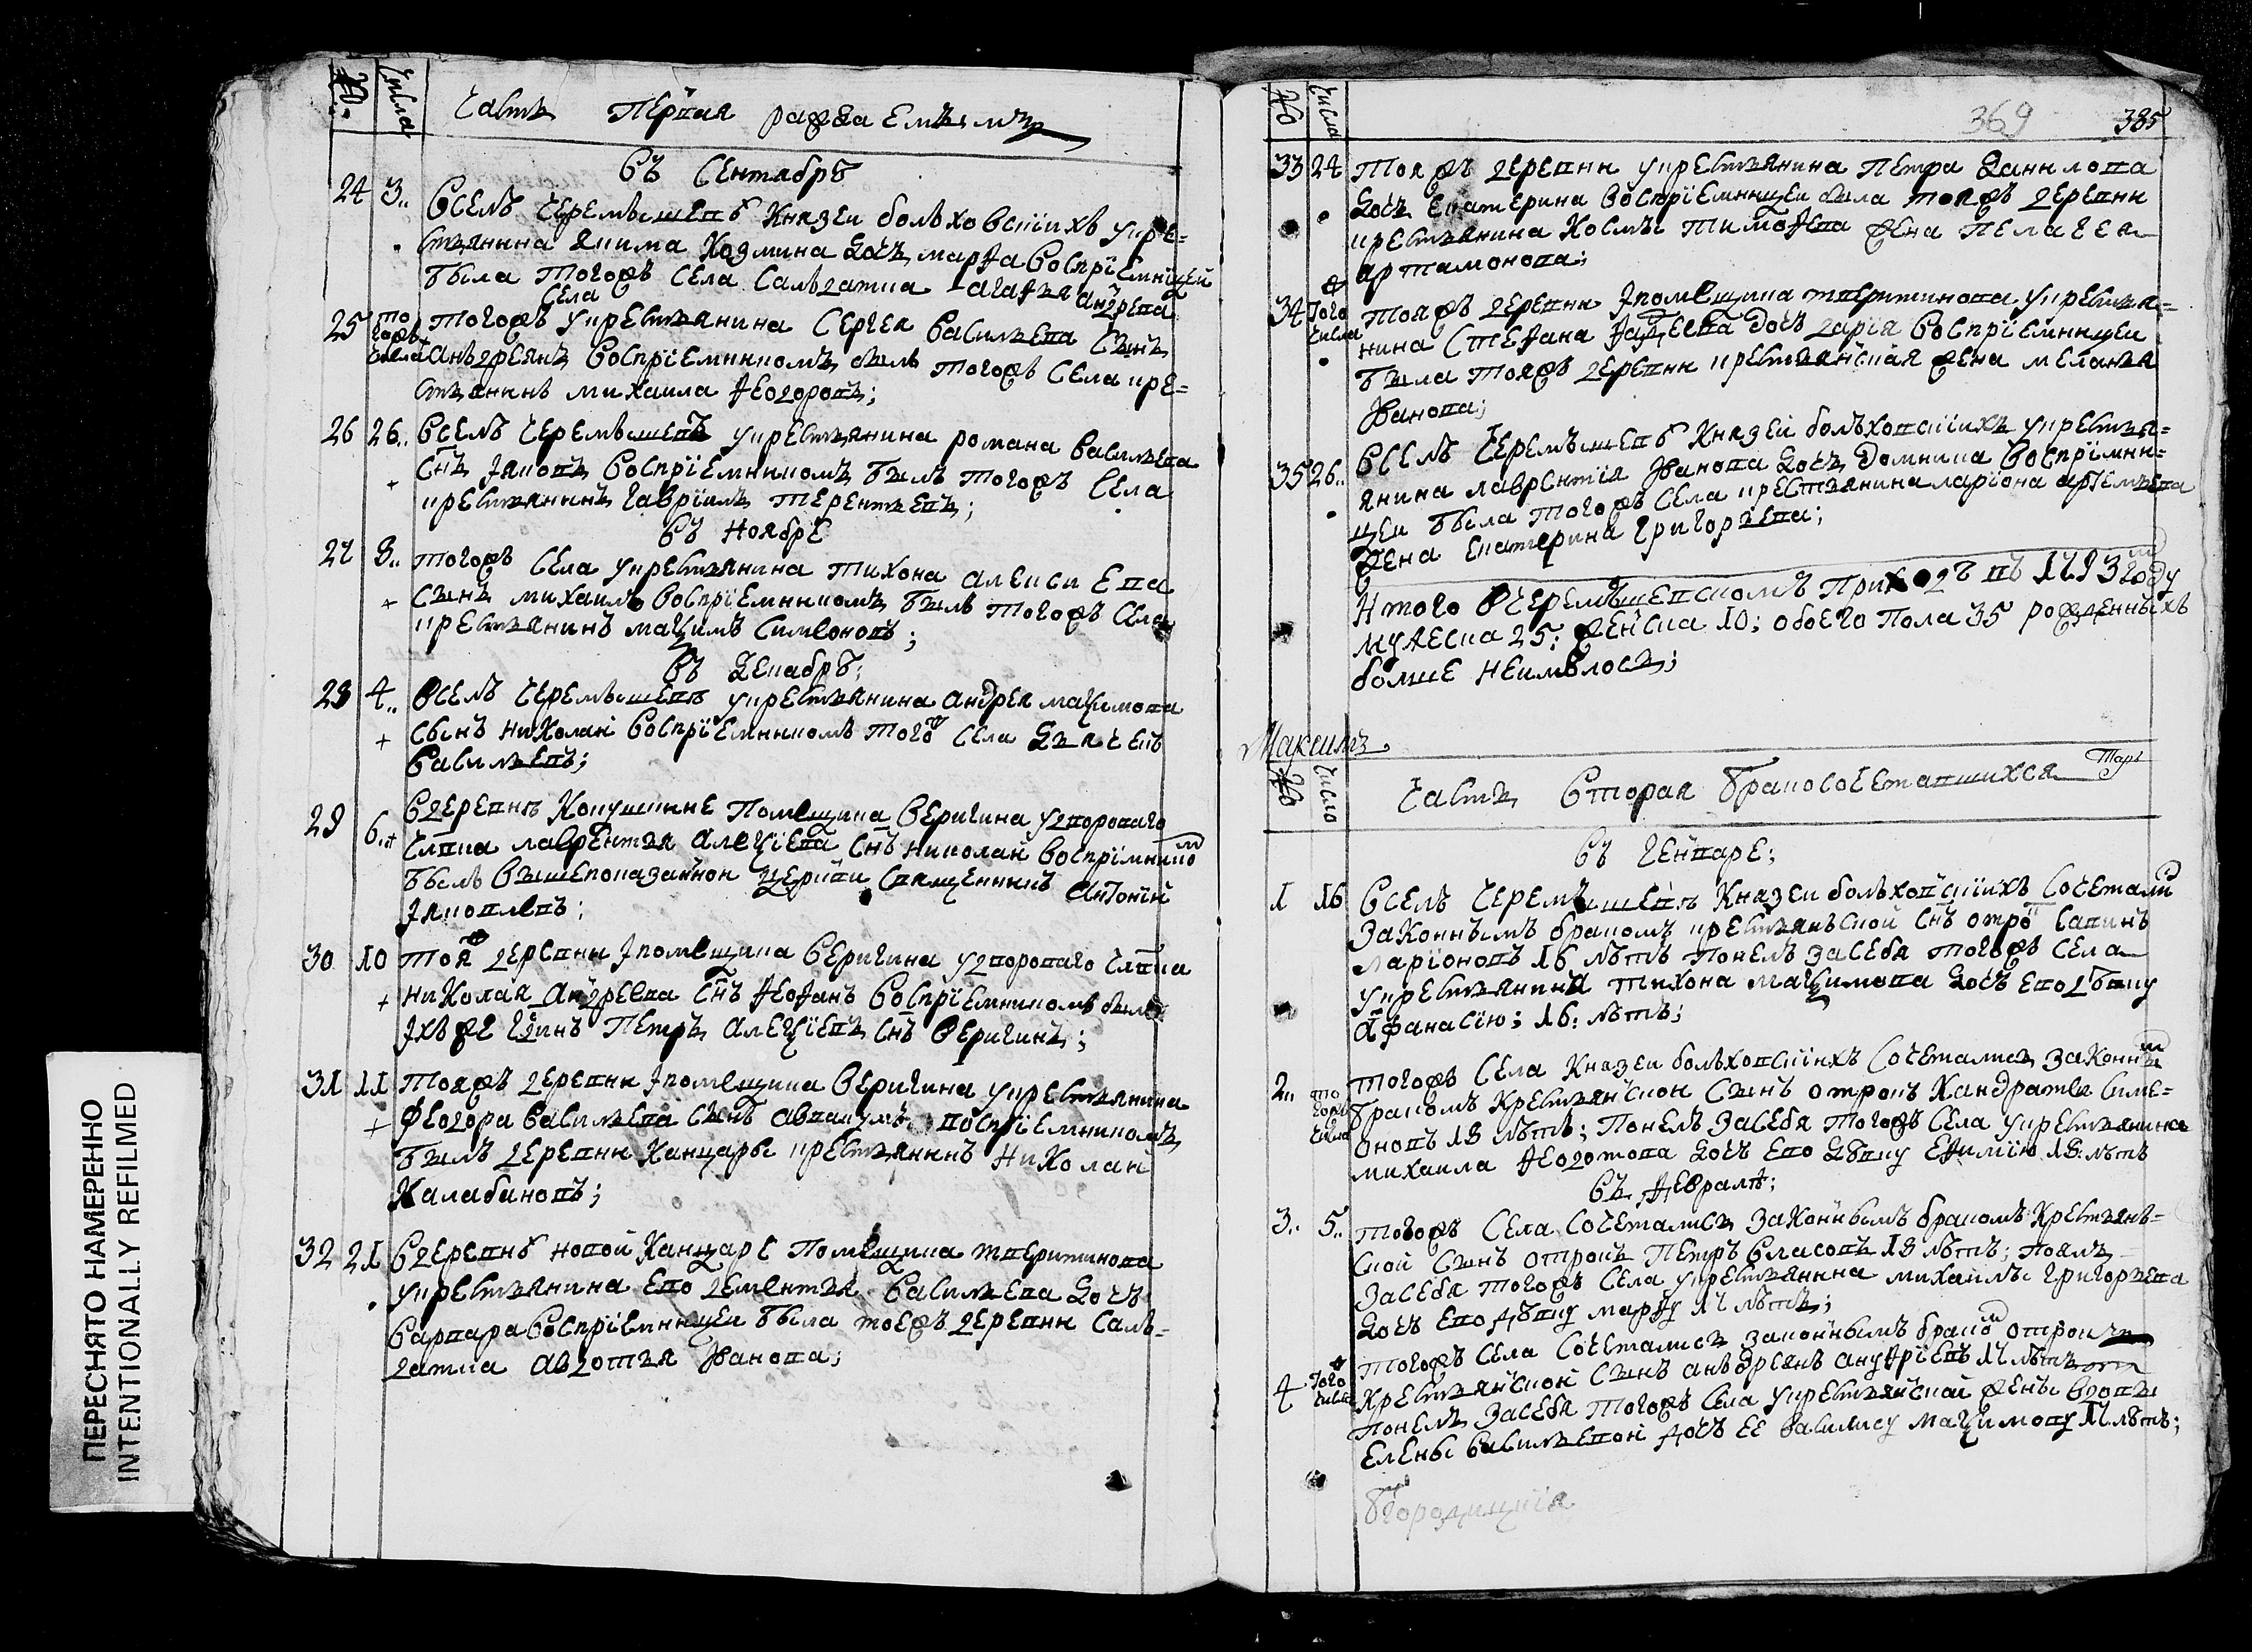 №
числа
Часть первая раждаемымъ
въ Сентябрѣ
24 3.. Вселѣ Черемышевѣ Князей болховскихъ укре=
стьянина якима Козмина дочь марfа воспрїемницей
была тогожъ села Салдатка агаfья андреева
села
25 того жъ числа тогожъ укрестьянина Сергея васильева сынъ
анъдреянъ воспрїемникомъ былъ тогожъ села кре=
стьянинъ михаила fеодоровъ;
26 26.. Вселѣ Черемышевѣ укрестьянина романа васильева
снъ яковъ воспрїемникомъ былъ тогожъ села
крестьянинъ гаврїилъ терентьевъ;
въ Ноябрѣ
27 8.. тогожъ села укрестьянина тихона алексеева
сынъ михаилъ воспрїемникомъ былъ тогожъ села
крестьянинъ маѯимъ симеоновъ;
въ декабрѣ;
28 4.. Вселѣ Черемышевѣ укрестьянина андрея маѯимова
сынъ николаи воспрїемникомъ тогож села
васильевъ;
29 6.. Вдеревнѣ Конушкине помещика веригина удворового
члвка лаврентья алеѯїева снъ николай воспрїмником
былъ вышепоказанной церкви священникъ антонїй
яковлевъ;
30 10 тояж деревни упомещика веригина удворового члвка
николая андреева снъ fеоfанъ воспрїемникомъ былъ
ихъ же гдинъ петръ алеѯїевъ снъ веригинъ;
31 11 тояжъ деревни упомещика веригина укрестьянина
феодора васильева сынъ авпакумъ воспрїемникомъ
былъ деревни Канцары крестьянинъ николай
Калабановъ;
32 21 Вдеревнѣ новой Канцаре помещика тверитинова
укрестьянина ево дементья васильева дочь
варвара воспрїемницеи была тоежъ деревни Сал=
датка авдотья Иванова;
369 385
№
числа
33 24 тояжъ деревни укрестьянина петра данилова
дочь екатерина воспрїемницеи была тояжъ деревни
крестьянина Космы тимоfеева жена пелагея
артамонова;
34 того ж числа тояжъ деревни упомещика тверитинова укрестья=
нина стеfана fадеева дочь дарїя воспрїемницеи
была тояжъ деревни крестьянская жена меланья
Иванова;
35 26.. Вселѣ Черемышевѣ Князеи болховскихъ укрестья=
янина лаврентїя Иванова дочь домника воспрїмни=
цеи была тогожъ села крестьянина ларїона артемьева
жена екатерина григорьева;
Итого вчеремышевскомъ приходѣ въ 1793м году
мужеска 25: женска 10; обоего пола 35 рожденныхъ
болше неимѣлось;
Максимъ
№
число
Часть вторая бракосочетавшихся
въ генваре;
1 16 Вселѣ Черемышевѣ Князеи болховскихъ сочетались
законнымъ бракомъ крестьянской снъ отро савинъ
ларїоновъ 16 лѣтъ понелъ засебя тогожъ села
укрестьянина тихона маѯимова дочь ево дѣвку
афанасїю; 16: лѣтъ;
2.. того жъ числа тогожъ села Князеи болховскихъ сочетались законным
бракомъ крестьянскои сынъ отрокъ Кандратеи симе=
оновъ 18 лѣтъ; понелъ засебя тогожъ села укрестьянина
михаила fеодотова дочь ево дѣвку еfимїю 18: лѣтъ
въ fевралѣ;
3.. 5.. тогожъ села сочетались законнымъ бракомъ крестьянь=
ской сынъ отрокъ петръ власовъ 18 лѣтъ; поялъ
засебя тогожъ села укрестьянина михаилы григорьева
дочь ево дѣвку марfу 17 лѣтъ;
4 того ж числа тогожъ села сочетались законнымъ браком отрок
крестьянской сынъ анъдреянъ ануfрїевъ 17 лѣтъ
понелъ засебя тогожъ села укрестьянской жены вдовы
елены васильевой дочь ее василису маѯимову 17 лѣтъ;
ПЕРЕСНЯТО НАМЕРЕННО
INTENTIONALLY REFILMED